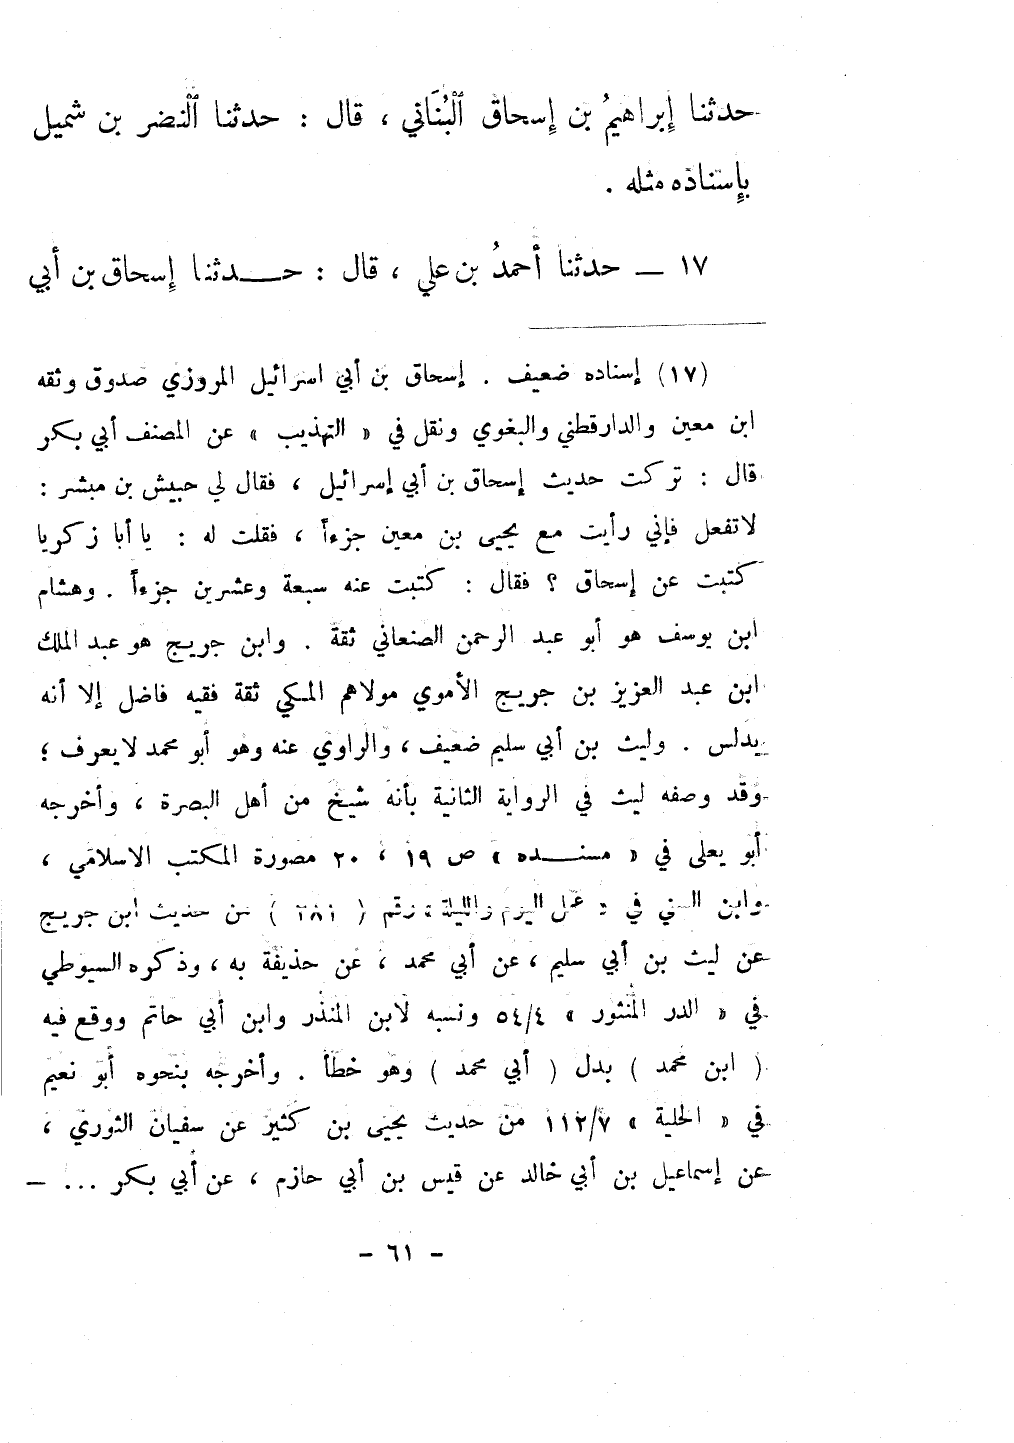 حدثنا إبراهيمُ بن إسحاق ٱلبُنَاني ، قال : حدثنا ٱلنضر بن شميل
بإسناده مثله .
١٧ — حدثنا أحمدُ بن علي ، قال : حـــدثنا إسحاق بن أبي
(١٧) إسناده ضعيف . إسحاق بن أبي اسرائيل المروزي صدوق وثقه
ابن معين والدارقطني والبغوي ونقل في « التهذيب » عن المصنف أبي بكر
قال : تركت حديث إسحاق بن أبي إسرائيل ، فقال لي حبيش بن مبشر :
لاتفعل فإني رأيت مع يحيى بن معين جزءاً ، فقلت له : يا أبا زكريا
كتبت عن إسحاق ؟ فقال : كتبت عنه سبعة وعشرين جزءاً . وهشام
ابن يوسف هو أبو عبد الرحمن الصنعاني ثقة . وابن جريج هو عبد الملك
ابن عبد العزيز بن جريج الأموي مولاهم المكي ثقة فقيه فاضل إلا أنه
يدلس . وليث بن أبي سليم ضعيف ، والراوي عنه وهو أبو محمد لايعرف ؛
وقد وصفه ليث في الرواية الثانية بأنه شيخ من أهل البصرة ، وأخرجه
أبو يعلى في « مسنـــده » ص ١٩ ، ٢٠ مصورة المكتب الاسلامي ،
وابن السني في « عمل اليوم والليلة » رقم ( ) من حديث ابن جريج
عن ليث بن أبي سليم ، عن أبي محمد ، عن حذيفة به ، وذكره السيوطي
في « الدر المنثور » ٥٤/٤ ونسبه لابن المنذر وابن أبي حاتم ووقع فيه
( ابن محمد ) بدل ( أبي محمد ) وهو خطأ . وأخرجه بنحوه أبو نعيم
في « الحلية » ١١٢/٧ من حديث يحيى بن كثير عن سفيان الثوري ،
عن إسماعيل بن أبي خالد عن قيس بن أبي حازم ، عن أبي بكر ... —
- ٦١ -